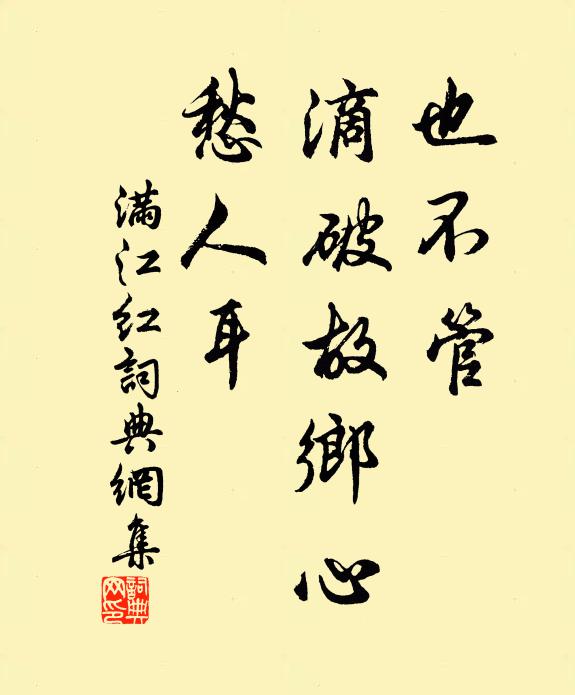 也不管
滴破故鄉心
愁人耳
滿江紅詞典網集
詞典网印